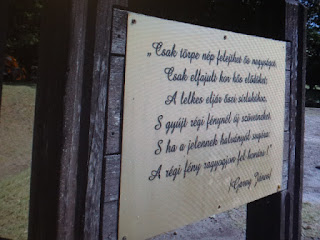 „Csak törpe nép felejthet ős nagyságot,
Csak elfajult kor hős elődöket;
A lelkes eljár ősei sírlakához,
S gyújt régi fénynél új szövétneket.
S ha a jelennek halványúl sugára:
A régi fény ragyogjon fel honára!"
/Garay János/